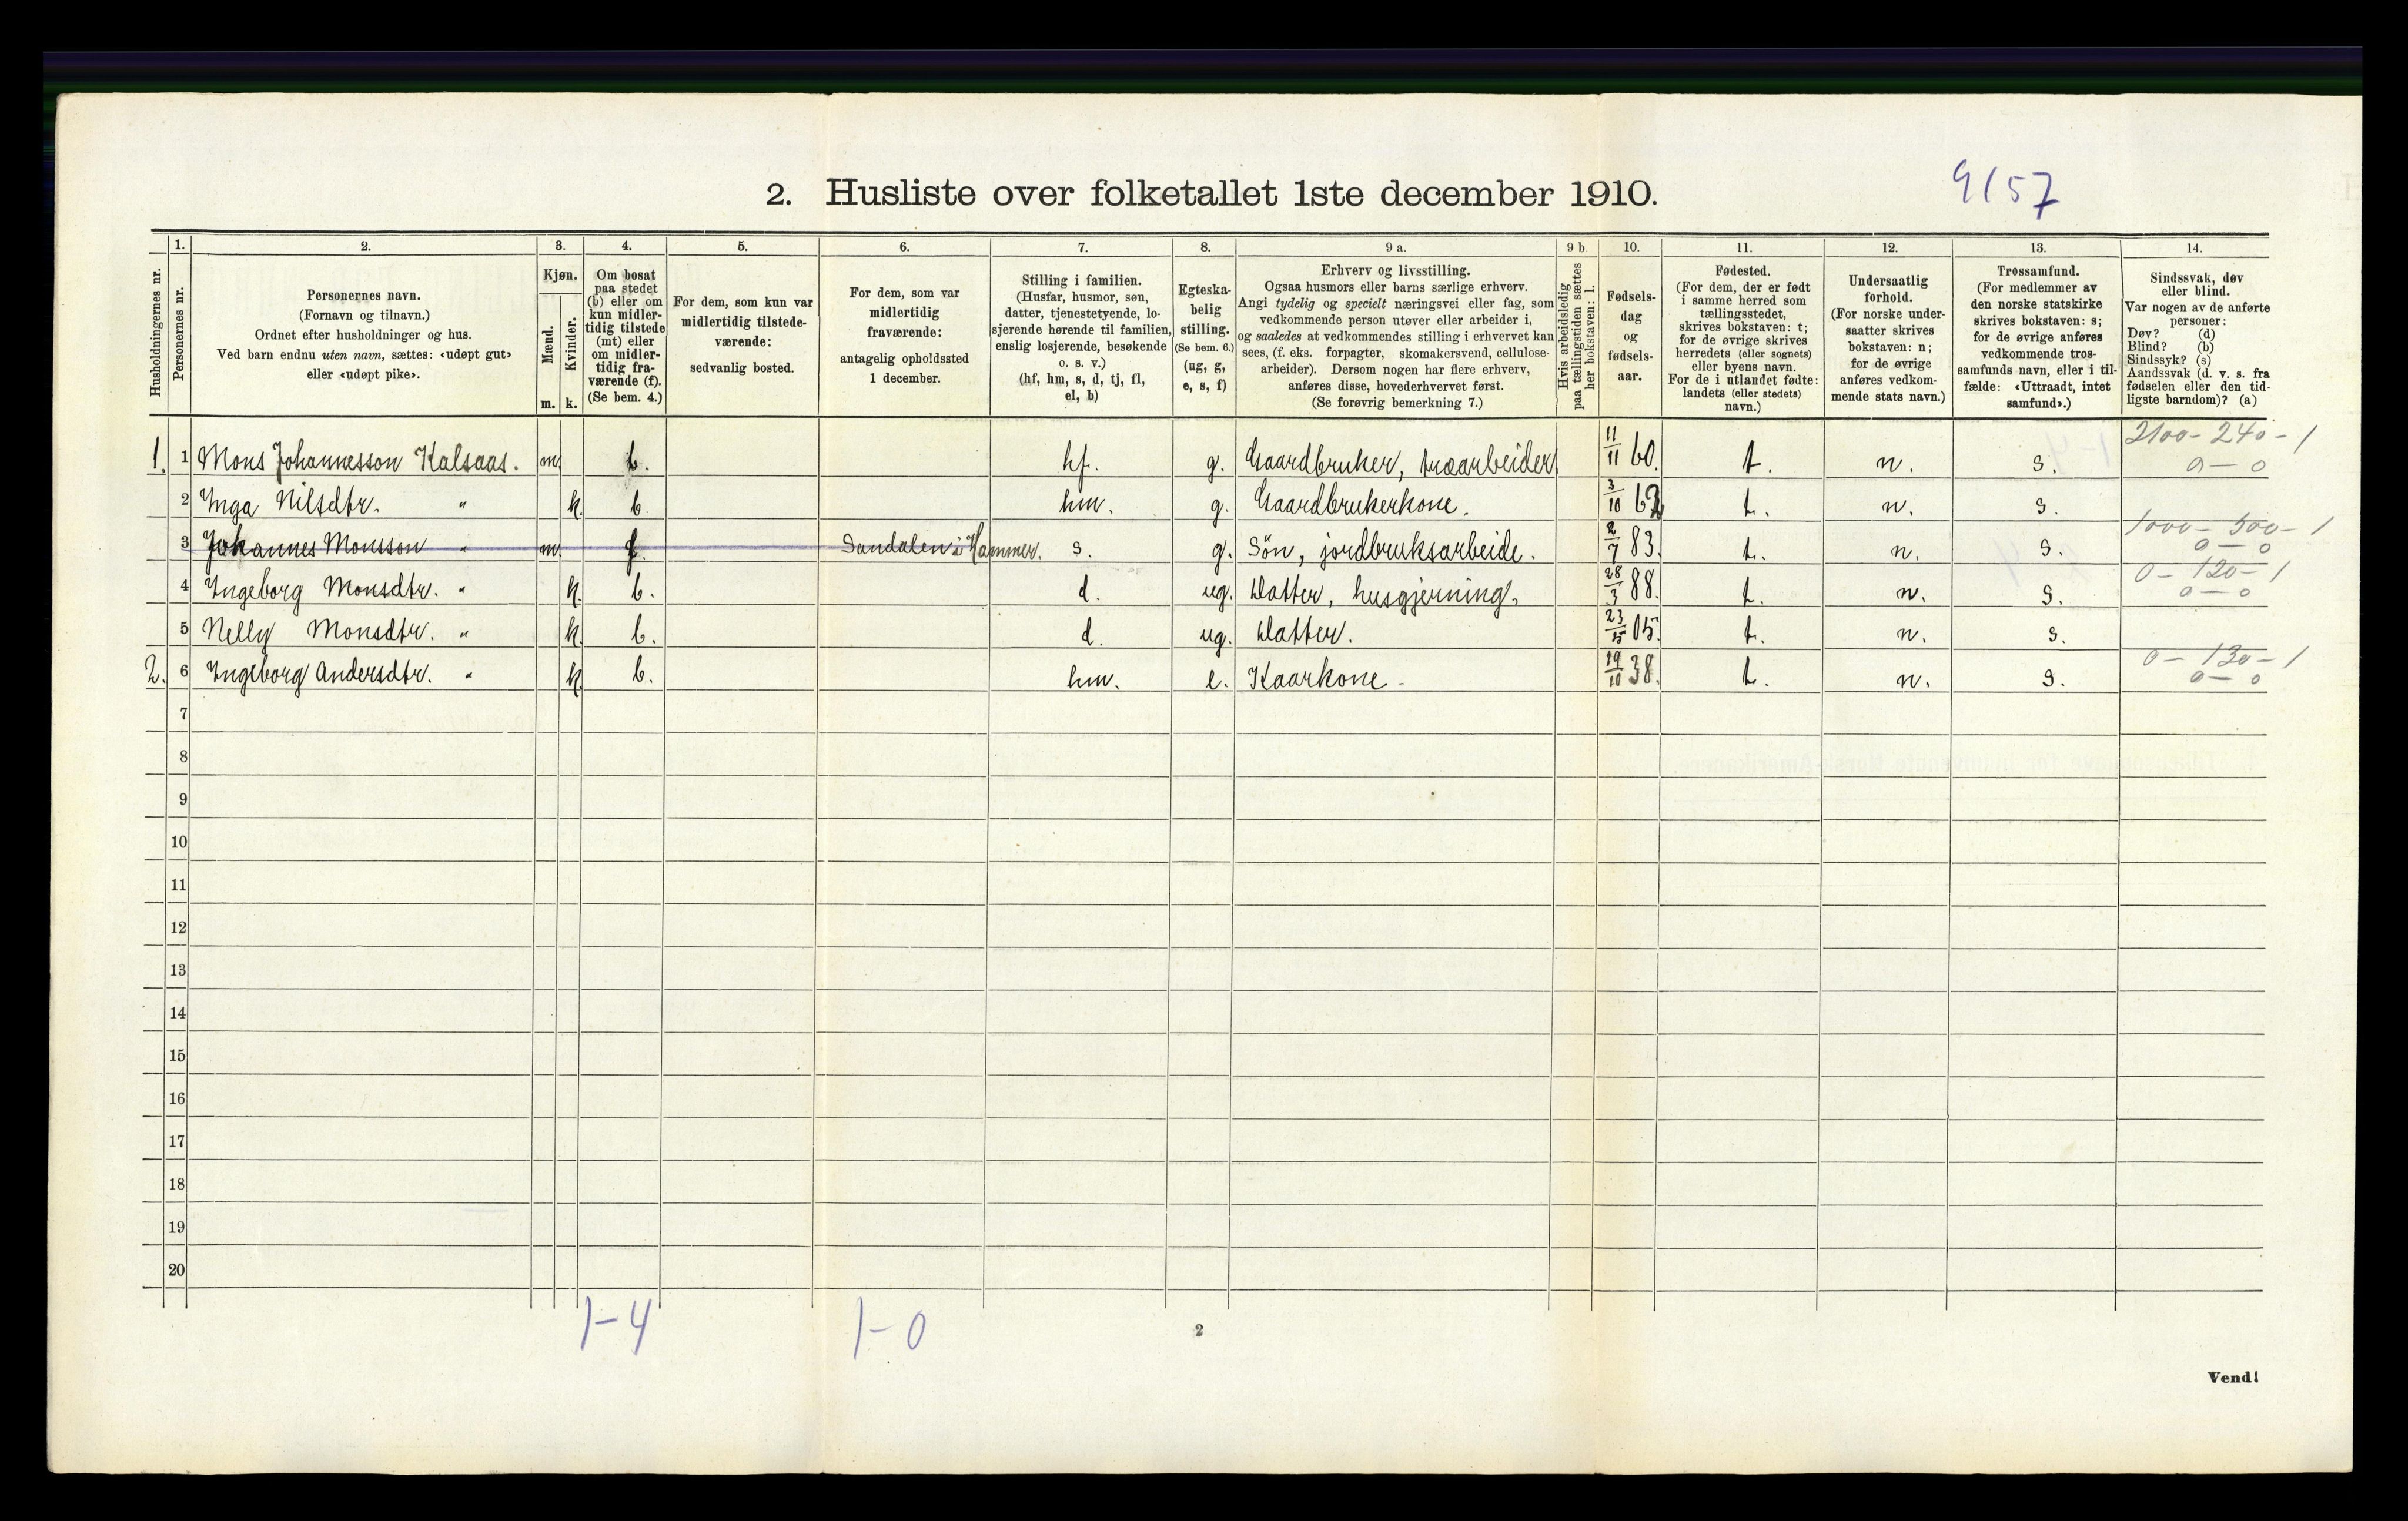 9157
2. Husliste over folketallet 1ste december 1910.
Husholdningernes nr.
1. Personernes nr.
2. Personernes navn.
(Fornavn og tilnavn.)
Ordnet efter husholdninger og hus.
Ved barn endnu uten navn, sættes: «udøpt gut»
eller «udøpt pike».
3. Kjøn.
Mænd. m.
Kvinder. k.
4. Om bosat
paa stedet
(b) eller om
kun midler-
tidig tilstede
(mt) eller
om midler-
tidig fra-
værende (f).
(Se bem. 4.)
5. For dem, som kun var
midlertidig tilstede-
værende:
sedvanlig bosted.
6. For dem, som var
midlertidig
fraværende:
antagelig opholdssted
1 december.
7. Stilling i familien.
(Husfar, husmor, søn,
datter, tjenestetyende, lo-
sjerende hørende til familien,
enslig losjerende, besøkende
o. s. v.)
(hf, hm, s, d, tj, fl,
el, b)
8. Egteska-
belig
stilling.
(Se bem. 6.)
(ug, g,
e, s, f)
9 a. Erhverv og livsstilling.
Ogsaa husmors eller barns særlige erhverv.
Angi tydelig og specielt næringsvei eller fag, som
vedkommende person utøver eller arbeider i,
og saaledes at vedkommendes stilling i erhvervet kan
sees, (f. eks. forpagter, skomakersvend, cellulose-
arbeider). Dersom nogen har flere erhverv,
anføres disse, hovederhvervet først.
(Se forøvrig bemerkning 7.)
9 b. Hvis arbeidsledig
paa tællingstiden sættes
her bokstaven: l.
10. Fødsels-
dag
og
fødsels-
aar.
11. Fødested.
(For dem, der er født
i samme herred som
tællingsstedet,
skrives bokstaven: t;
for de øvrige skrives
herredets (eller sognets)
eller byens navn.
For de i utlandet fødte:
landets (eller stedets)
navn.)
12. Undersaatlig
forhold.
(For norske under-
saatter skrives
bokstaven: n;
for de øvrige
anføres vedkom-
mende stats navn.)
13. Trossamfund.
(For medlemmer av
den norske statskirke
skrives bokstaven: s;
for de øvrige anføres
vedkommende tros-
samfunds navn, eller i til-
fælde: «Uttraadt, intet
samfund».)
14. Sindssvak, døv
eller blind.
Var nogen av de anførte
personer:
Døv? (d)
Blind? (b)
Sindssyk? (s)
Aandssvak (d. v. s. fra
fødselen eller den tid-
ligste barndom)? (a)
1. 1 Mons Johannesson Kalsaas. m. b. hf. g. Gaardbruker, træarbeider 11/11 60. t. n. s. 2100-240-1
0-0
2 Inga Nilsdtr. " k. b. hm. g. Gaardbrukerkone. 3/10 62 t. n. s.
3 Johannes Monsson " m. f. Sandalen i Hammer. s. g. Søn, jordbruksarbeide. 2/7 83. t. n. s. 1000-500-1
0-0
4 Ingeborg Monsdtr. " k. b. d. ug. Datter, husgjerning. 28/3 88. t. n. s. 0-120-1
0-0
5 Nelly Monsdtr. " k. b. d. ug. Datter. 23/5 05. t. n. s.
2. 6 Ingeborg Andersdtr. " k. b. hm. e. Kaarkone - 19/10 38. t. n. s. 0-130-1
0-0
7
8
9
10
11
12
13
14
15
16
17
18
19
20
1-4 1-0
2
Vend!